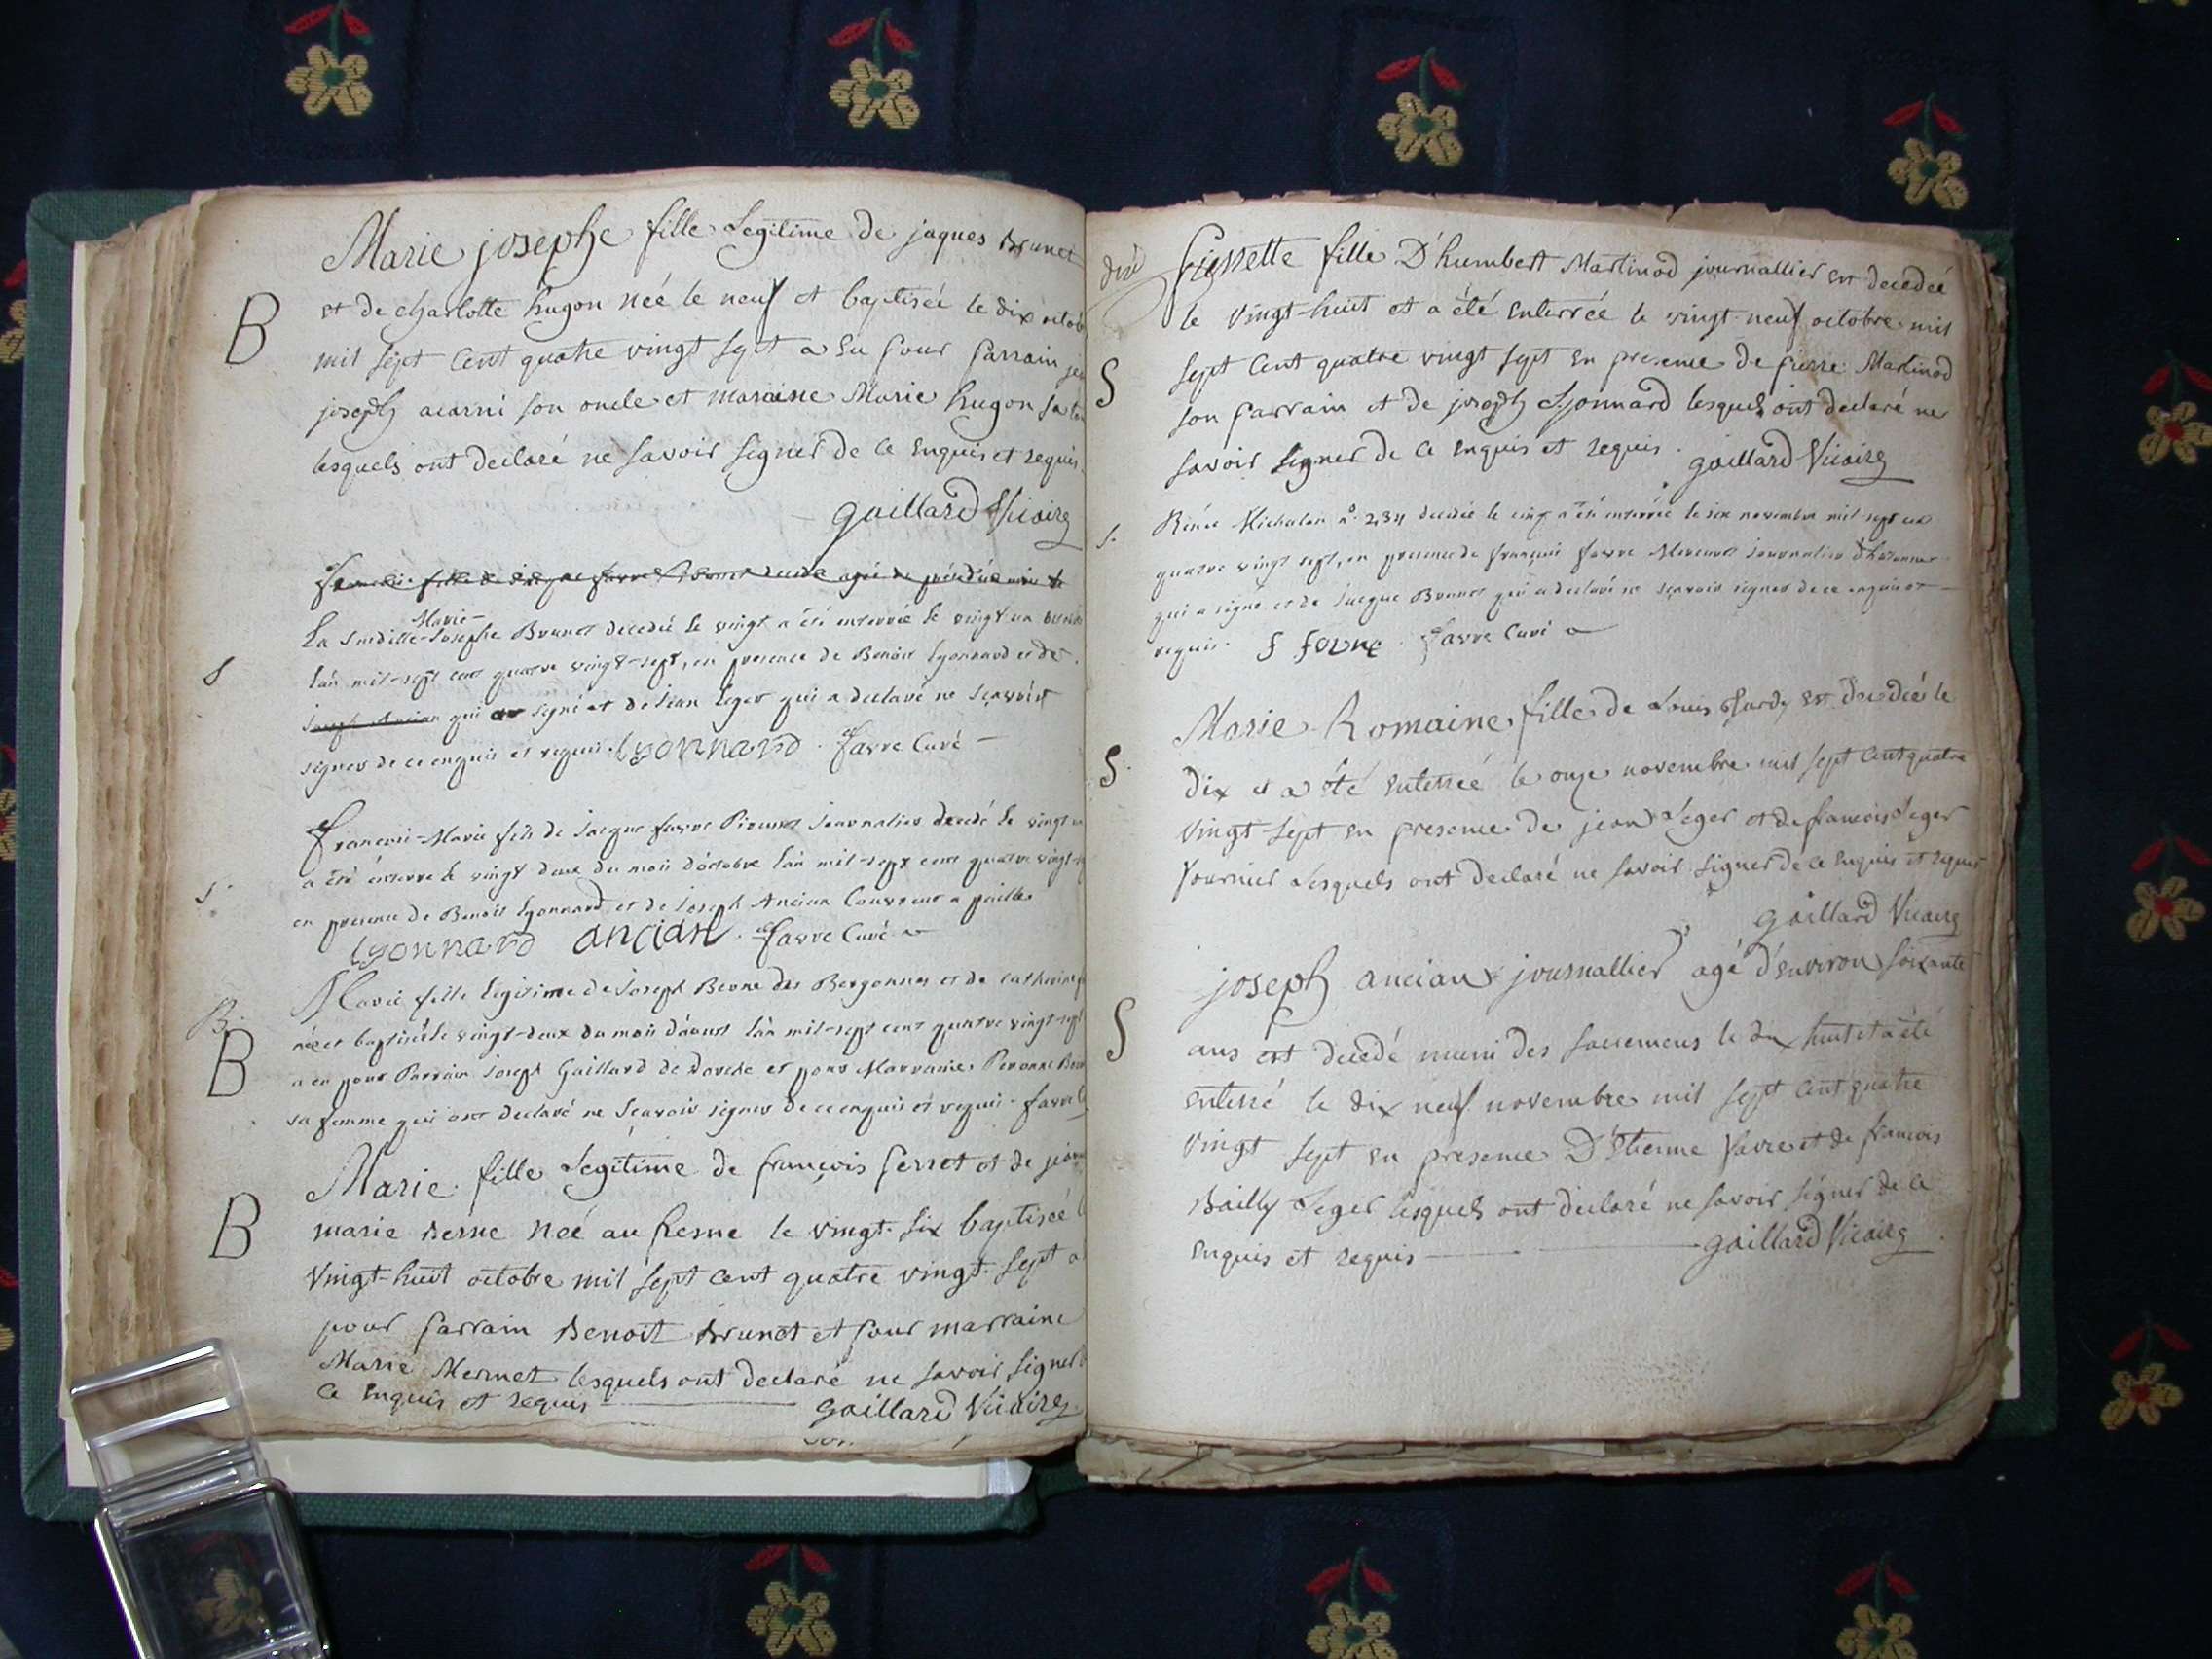 Marie josephe fille Legitime de jaques Brunet
B
et de charlotte hugon née le neuf et baptisée le dix octob
mil sept cent quatre vingt sept a eu pour parrain
joseph acarni son oncle et maraine Marie hugon sa
lesquels ont declaré ne savoir signer de ce enquis et requis
gaillard Vicaire
Marie
La Josephe Brunet decedée le vingt a été enterrée le vingt un
S
l'an mil-sept cent quatre vingt-sept, en presence de Benoit Lyonnard et de
Joseph Ancian qui signé et de Jean Leger qui a declaré ne sçavoir
signer de ce enquis et requis. lyonnard. favre Curé
François-Marie fils de Jacque favre journalier decedé le vingt
S.
a été enterré le vingt deux du mois d'octobre l'an mil-sept cent quatre vingt
en presence de Benoit Lyonnard et de Joseph Ancian Couvreur a paille
lyonnard ancian. favre Curé
Marie fille legitime de Joseph Berne des Bergonnes et de Catherine
B.
née et baptisée le vingt-deux du mois d'aoust l'an mil-sept cent quatre vingt-sept
B
a eu pour Parrain Joseph Gaillard de et pour Marraine Peronne
sa femme qui ont declaré ne sçavoir signer de ce enquis et requis. favre
Marie fille Legitime de françois perret et de
B
marie Berne née au fresne le vingt-six baptisée
vingt-huit octobre mil sept cent quatre vingt-sept a
pour parrain Benoit Brunet et pour marraine
Marie Mermet lesquels ont declaré ne savoir signer
ce enquis et requis gaillard Vicaire
fille D'humbert Martinod journallier est decedée
le vingt-huit et a été enterrée le vingt-neuf octobre mil
S
sept cent quatre vingt sept en presence de pierre Martinod
son parrain et de joseph Lyonnard lesquels ont declaré ne
savoir signer de ce enquis et requis. gaillard Vicaire
S.
Michalon decedée le cinq a été enterrée le six novembre mil-sept cent
quatre vingt sept, en presence de françois favre journalier
qui a signé et de Jacque Brunet qui a declaré ne sçavoir signer de ce enquis et
requis. f favre. favre Curé
Marie Romaine fille de Louis est decedée le
S.
dix et a été enterrée le onze novembre mil sept cent quatre
vingt-sept en presence de jean Leger et de francois Leger
fournier Lesquels ont declaré ne savoir signer de ce enquis et requis
gaillard Vicaire
joseph ancian journallier agé d'environ soixante
S
ans est decedé muni des sacremens le dix huit et a été
enterré le dix neuf novembre mil sept cent quatre
vingt sept en presence D'Etienne favre et de francois
Bailly Leger lesquels ont declaré ne savoir signer de ce
enquis et requis gaillard Vicaire